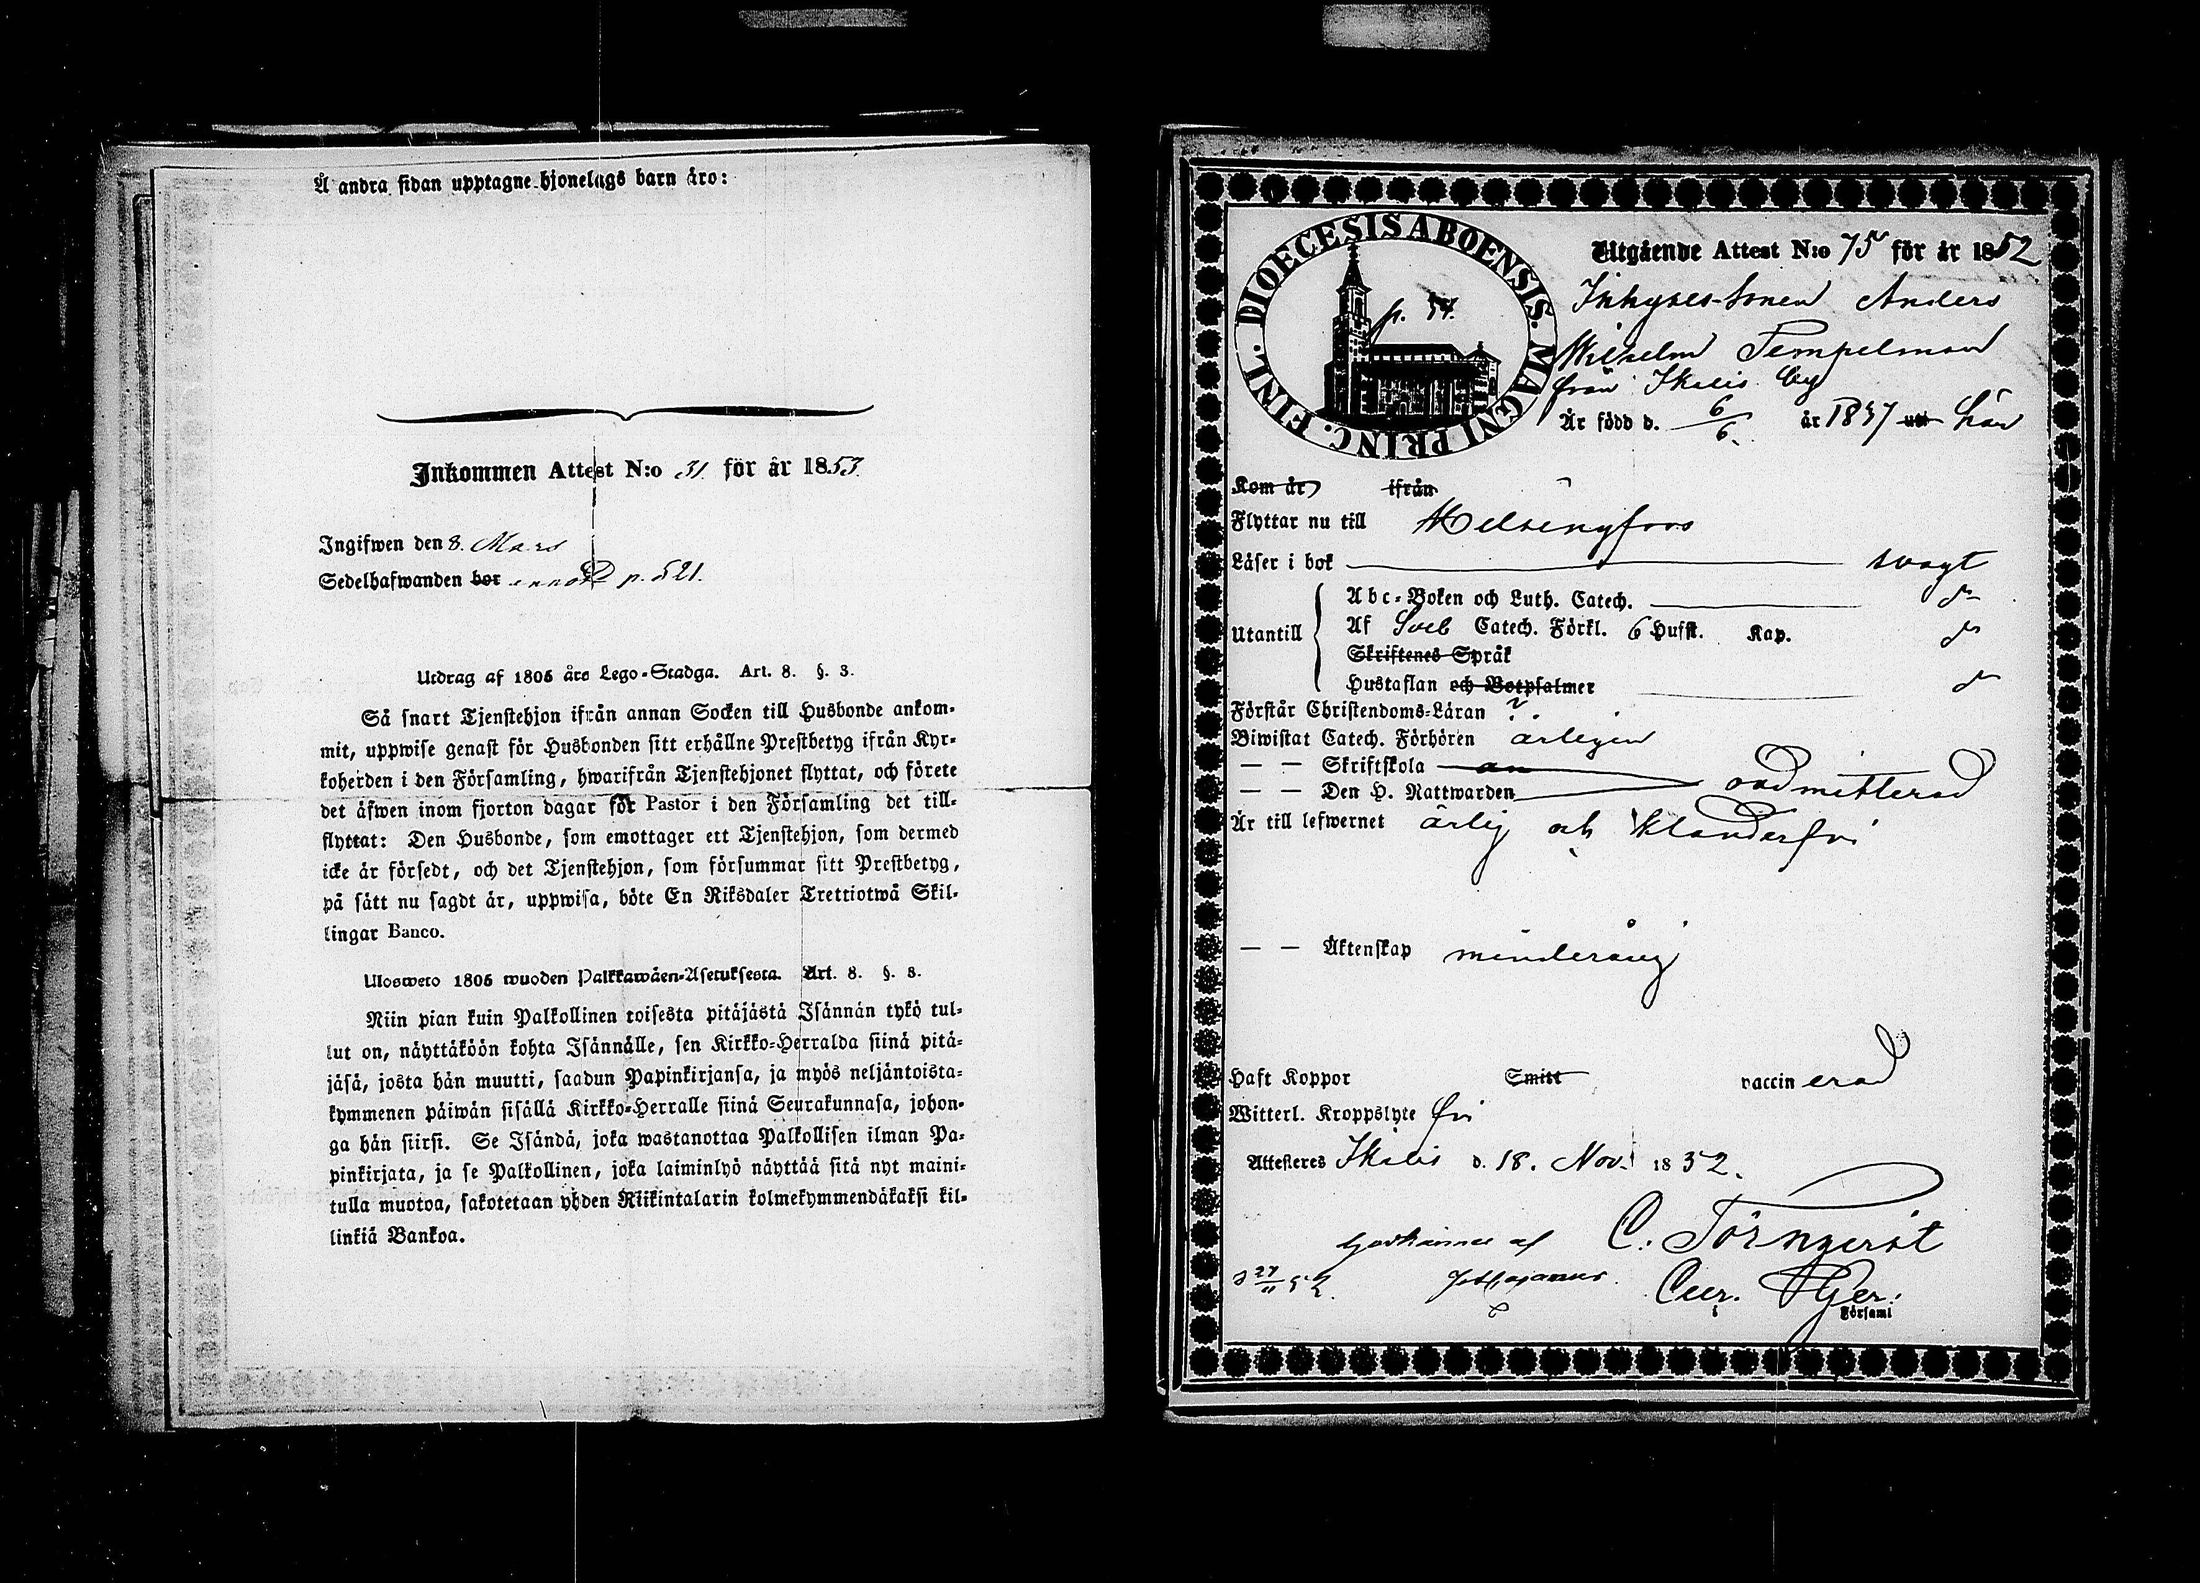 Å andra sidan upptagne hjonelags barn äro:
Inkommen Attest N:o 31. för år 1853.
Ingifwen den 8. Mars
Sedelhafwanden bor p. 521.
Utdrag af 1805 års Lego-Stadga. Art. 8. §. 3.
Så snart Tjenstehjon ifrån annan Socken till Husbonde ankom-
mit, uppwise genast för Husbonden sitt erhållne Prestbetyg ifrån Kyr-
koherden i den Församling, hwarifrån Tjenstehjonet flyttat, och förete
det äfwen inom fjorton dagar för Pastor i den Församling det till-
flyttat: Den Husbonde, som emottager ett Tjenstehjon, som dermed
icke är försedt, och det Tjenstehjon, som försummar sitt Prestbetyg,
på sätt nu sagdt är, uppwisa, böte En Riksdaler Trettiotwå Skil-
lingar Banco.
Ulosweto 1805 wuoden Palkkawäen-Asetuksesta. Art. 8. §. 3.
Niin pian kuin Palkollinen toisesta pitäjästä Isännän tykö tul-
lut on, näyttäköön kohta Isännälle, sen Kirkko-Herralda siinä pitä-
jäsä, josta hän muutti, saadun Papinkirjansa, ja myös neljäntoista-
kymmenen päiwän sisällä Kirkko-Herralle siinä Seurakunnasa, johon-
ga hän siirsi. Se Isändä, joka wastanottaa Palkollisen ilman Pa-
pinkirjata, ja se Palkollinen, joka laiminlyö näyttää sitä nyt maini-
tulla muotoa, sakotetaan yhden Riikintalarin kolmekymmendäkaksi kil-
linkiä Bankoa.
DIOECESIS ABOENSIS. MAGNI PRINC. FINL.
p. 54.
Utgående Attest N:o 75 för år 1852
Inhyses-Sonen Anders
Wilhelm Tempelman
från Ikalis by
Är född d. 6/6. år 1837 uti här
Kom år ifrån
Flyttar nu till Helsingfors
Läser i bok swagt
Utantill
Abc-Boken och Luth. Catech. do
Af Sveb Catech. Förkl. 6 Hufst. Kap. do
Skriftenes Språk
Hustaflan och Botpsalmer do
Förstår Christendoms-Läran
Biwistat Catech. Förhören årligen
— — Skriftskola
— — Den H. Nattwarden oadmitterad
Är till lefwernet ärlig och klanderfri
— — Äktenskap minderårig
Haft Koppor Smitt vaccin erad
Witterl. Kroppslyte fri
Attesteres Ikalis d. 18. Nov. 1852.
C. Törnqvist